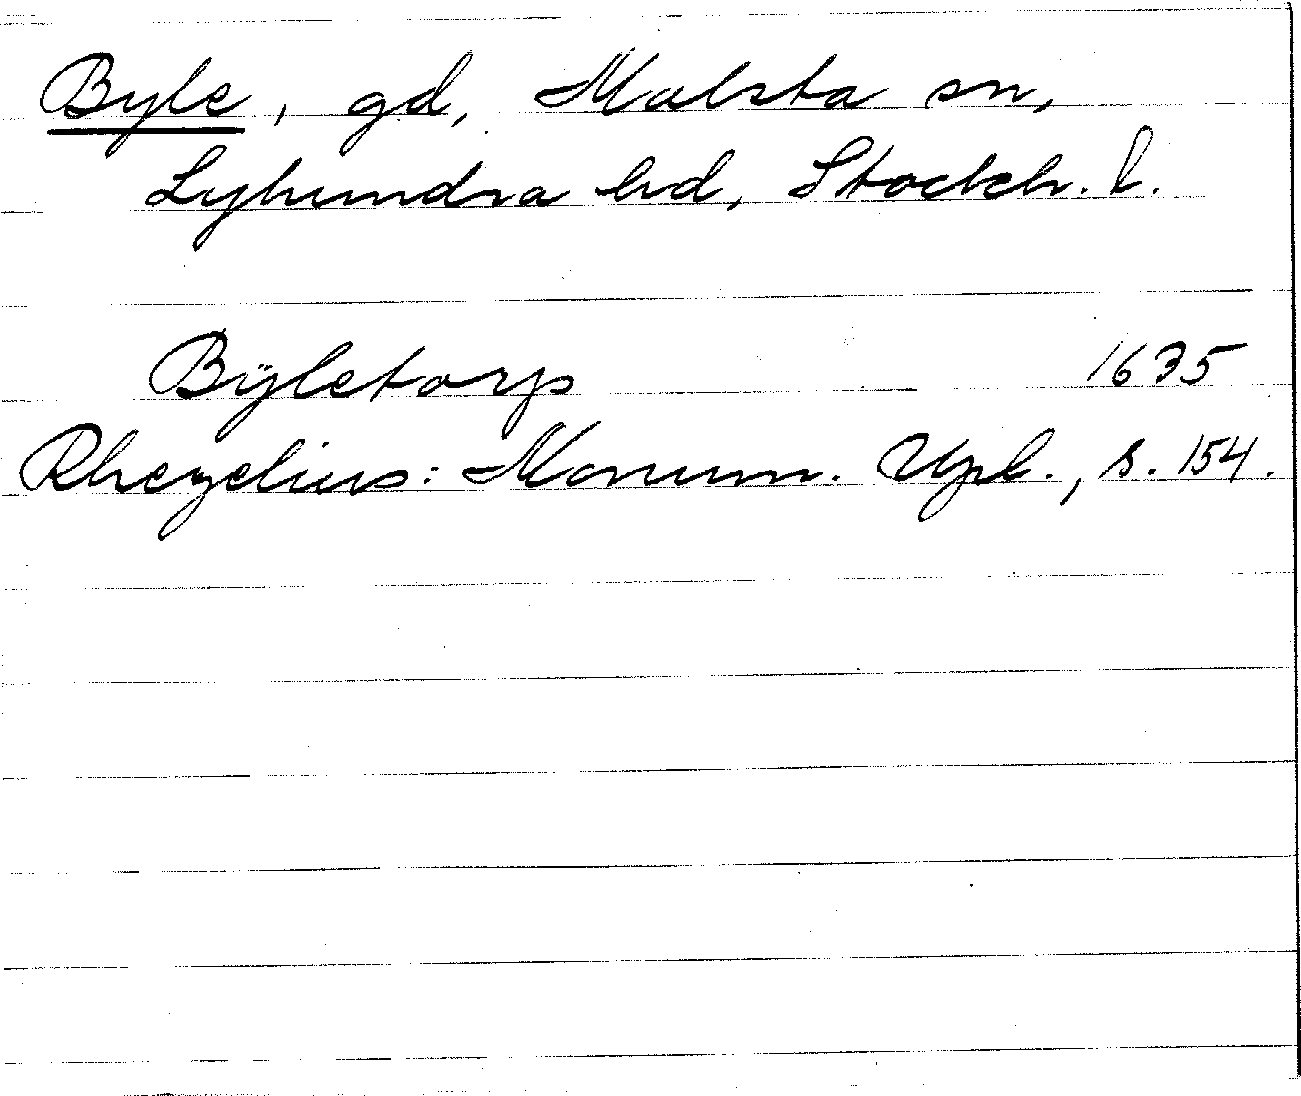 Byle, gd, Malsta sn,
Lyhundra hd, Stockh. l.
Bÿletorp 1635
Rhezelius: Monum. Upl., s. 154.